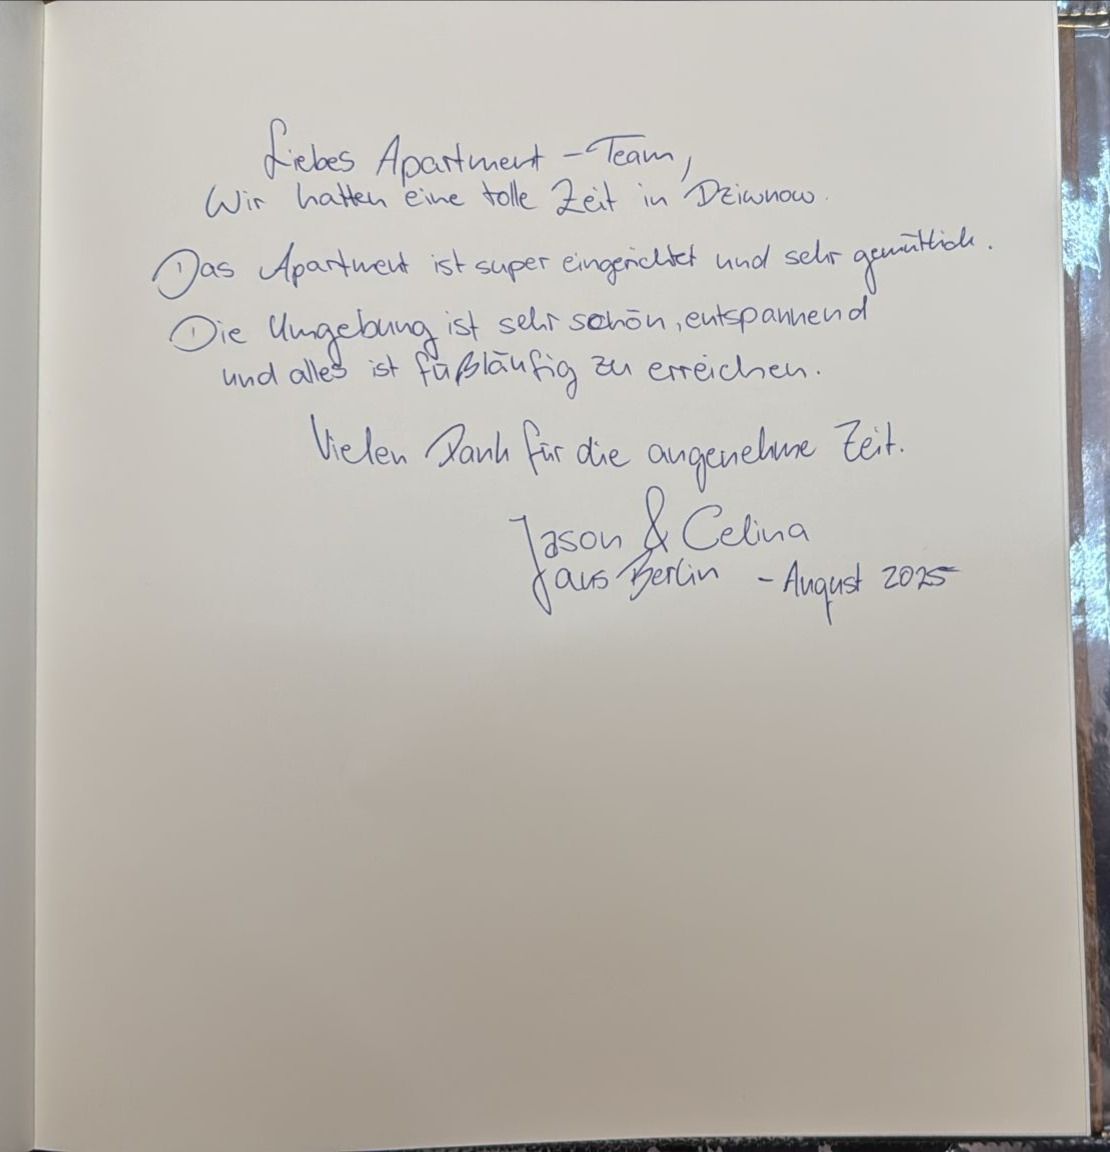 Liebes Apartment - Team,
Wir hatten eine tolle Zeit in Dziwnow.
Das Apartment ist super eingerichtet und sehr gemütlich.
Die Umgebung ist sehr schön, entspannend
und alles ist fußläufig zu erreichen.
Vielen Dank für die angenehme Zeit.
Jason & Celina
aus Berlin - August 2025